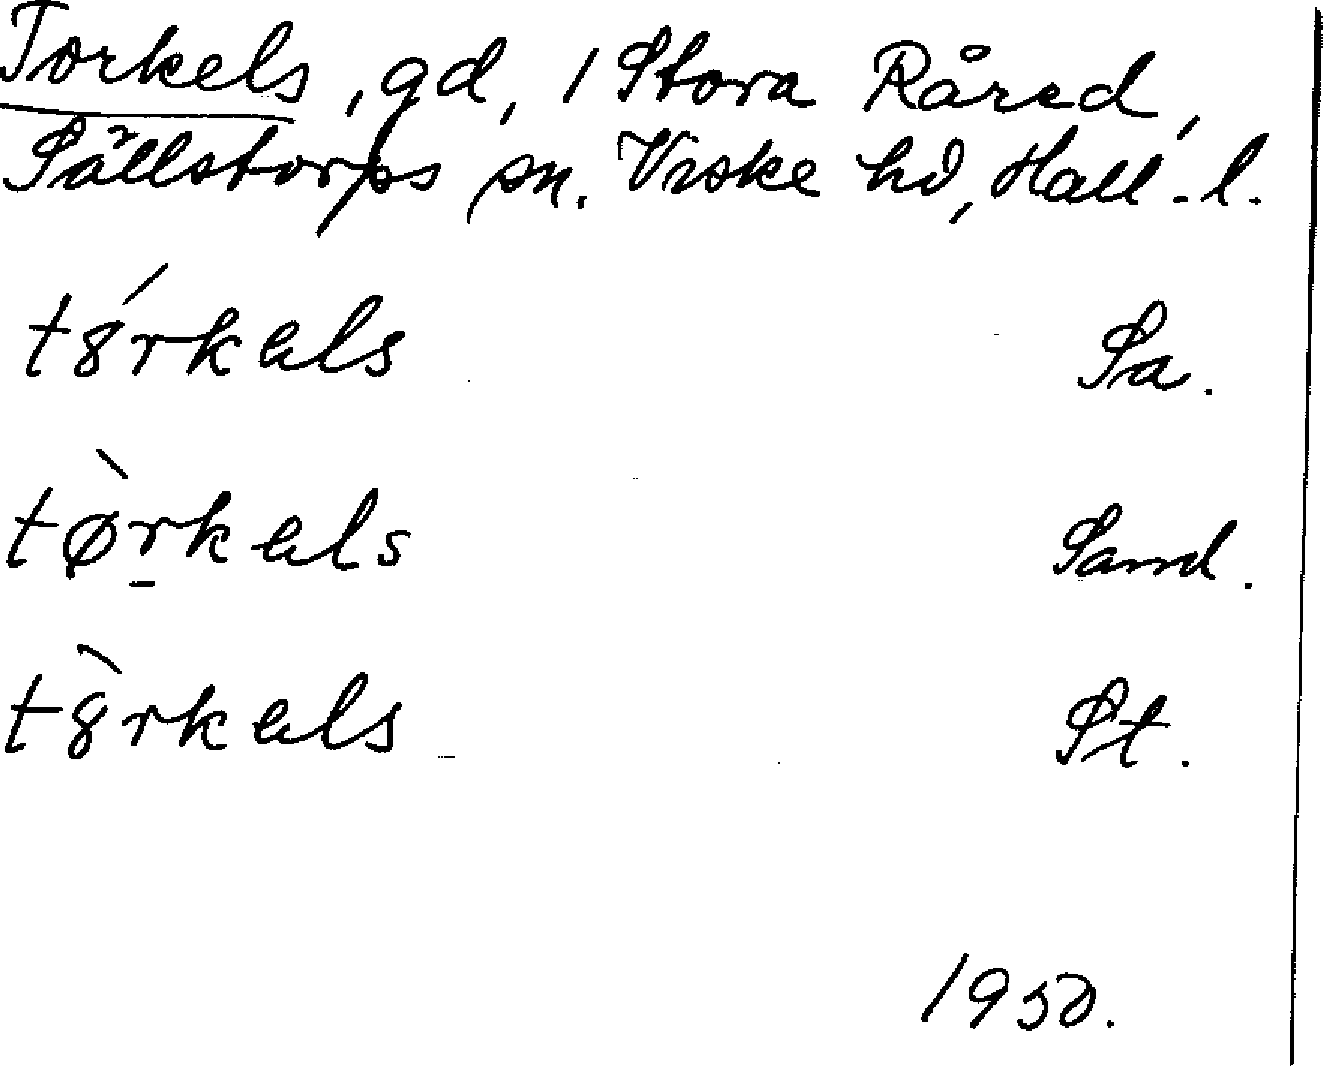 Torkels, gd, i Stora Råred,
Sällstorps sn. Viske hd, Hall. l.
tȣ́rkəls Sa.
tø̀r̲kəls Sand.
tȣ̀rkəls St.
1950.